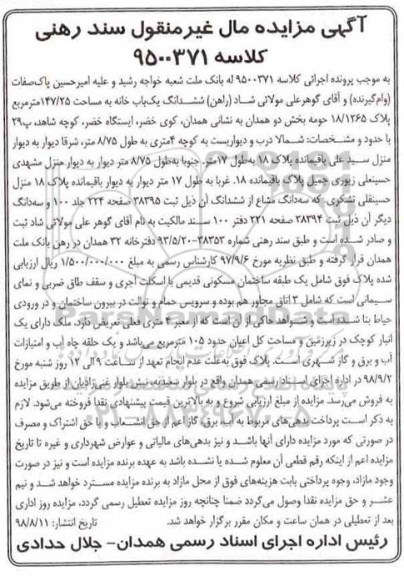 آگهی مزایده مال غیرمنقول سند رهنی
کلاسه ۹۵۰۰۳۷۱
به موجب پرونده اجرائی کلاسه ۹۵۰۰۳۷۱ له بانک ملت شعبه خواجه رشید و علیه امیرحسین پاک‌صفات
(وام‌گیرنده) و آقای گوهرعلی مولائی شاد (راهن) ششدانگ یک‌باب خانه به مساحت ۱۴۷/۲۵مترمربع
پلاک ۱۸/۱۲۶۵ حومه بخش دو همدان به نشانی همدان، کوی خضر، ایستگاه خضر، کوچه شاهد، پ۲۹
با حدود و مشخصات: شمالا درب و دیواریست به کوچه ۴متری به طول ۸/۷۵ متر، شرقا دیوار به دیوار
منزل سید علی باقیمانده پلاک ۱۸ به‌طول ۱۷متر. جنوبا به‌طول ۸/۷۵ متر دیوار به دیوار منزل مشهدی
حسینعلی زیوری جمیل پلاک باقیمانده ۱۸. غربا به طول ۱۷ متر دیوار به دیوار باقیمانده پلاک ۱۸ منزل
حسینقلی تشکری که سه‌دانگ مشاع از ششدانگ آن ذیل ثبت ۳۸۳۹۵ صفحه ۲۲۴ جلد ۱۰۰ و سه‌دانگ
دیگر آن ذیل ثبت ۳۸۳۹۴ صفحه ۲۲۱ دفتر ۱۰۰ سند مالکیت به نام آقای گوهر علی مولائی شاد ثبت
و صادر شده است و طبق سند رهنی شماره ۳۸۳۵۳-۹۳/۵/۲۰ دفترخانه ۳۲ همدان در رهن بانک ملت
همدان قرار گرفته و طبق نظریه مورخ ۹۷/۹/۶ کارشناس رسمی به مبلغ ۱/۵۰۰/۰۰۰/۰۰۰ ریال ارزیابی
شده پلاک فوق شامل یک طبقه ساختمان مسکونی قدیمی با اسکلت آجری و سقف طاق ضربی و نمای
سیمانی است که شامل ۳ اتاق مجاور هم بوده و سرویس حمام و توالت در بیرون ساختمان و در ورودی
حیاط بنا شده‌است و شواهد حاکی از آن است که از معبر ۴ متری فعلی تعریض دارد. ملک دارای یک
انبار کوچک در زیرزمین و مساحت کل اعیان حدود ۱۰۵ مترمربع می‌باشد و یک حلقه چاه آب و امتیازات
آب و برق و گاز شهری است. پلاک فوق به‌علت عدم انجام تعهد از ساعت ۹ الی ۱۲ روز شنبه مورخ
۹۸/۹/۲ در اداره اجرای اسناد رسمی همدان واقع در بلوار مدنی نبش بلوار غنی‌زادیان از طریق مزایده
به فروش می‌رسد. مزایده از مبلغ ارزیابی شروع و به بالاترین قیمت پیشنهادی نقدا فروخته می‌شود. لازم
به ذکر است پرداخت بدهی‌های مربوط به آب، برق، گاز اعم از حق انشعاب و یا حق اشتراک و مصرف
در صورتی که مورد مزایده دارای آنها باشد و نیز بدهی‌های مالیاتی و عوارض شهرداری و غیره تا تاریخ
مزایده اعم از اینکه رقم قطعی آن معلوم شده یا نشده باشد به عهده برنده مزایده است و نیز در صورت
وجود مازاد، وجوه پرداختی بابت هزینه‌های فوق از محل مازاد به برنده مزایده مسترد خواهد شد و نیم
عشر و حق مزایده نقدا وصول می‌گردد ضمنا چنانچه روز مزایده تعطیل رسمی گردد، مزایده روز اداری
بعد از تعطیلی در همان ساعت و مکان مقرر برگزار خواهد شد. تاریخ انتشار: ۹۸/۸/۱۱
رئیس اداره اجرای اسناد رسمی همدان- جلال حدادی
ParsNamadData